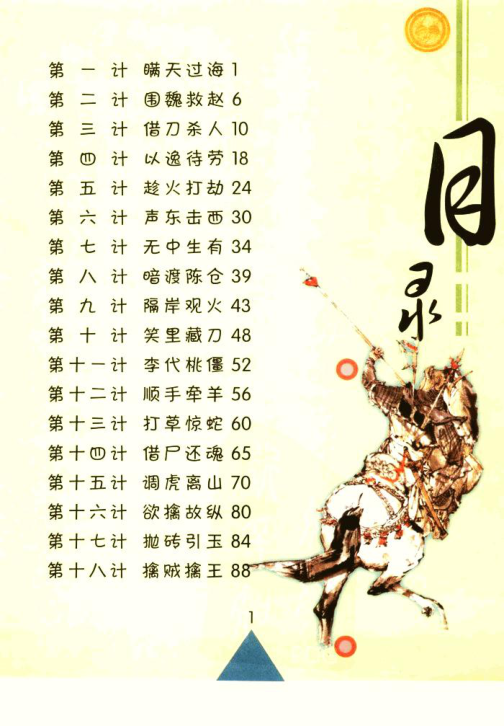 目录
第一计 瞒天过海 1
第二计 围魏救赵 6
第三计 借刀杀人 10
第四计 以逸待劳 18
第五计 趁火打劫 24
第六计 声东击西 30
第七计 无中生有 34
第八计 暗渡陈仓 39
第九计 隔岸观火 43
第十计 笑里藏刀 48
第十一计 李代桃僵 52
第十二计 顺手牵羊 56
第十三计 打草惊蛇 60
第十四计 借尸还魂 65
第十五计 调虎离山 70
第十六计 欲擒故纵 80
第十七计 抛砖引玉 84
第十八计 擒贼擒王 88
1